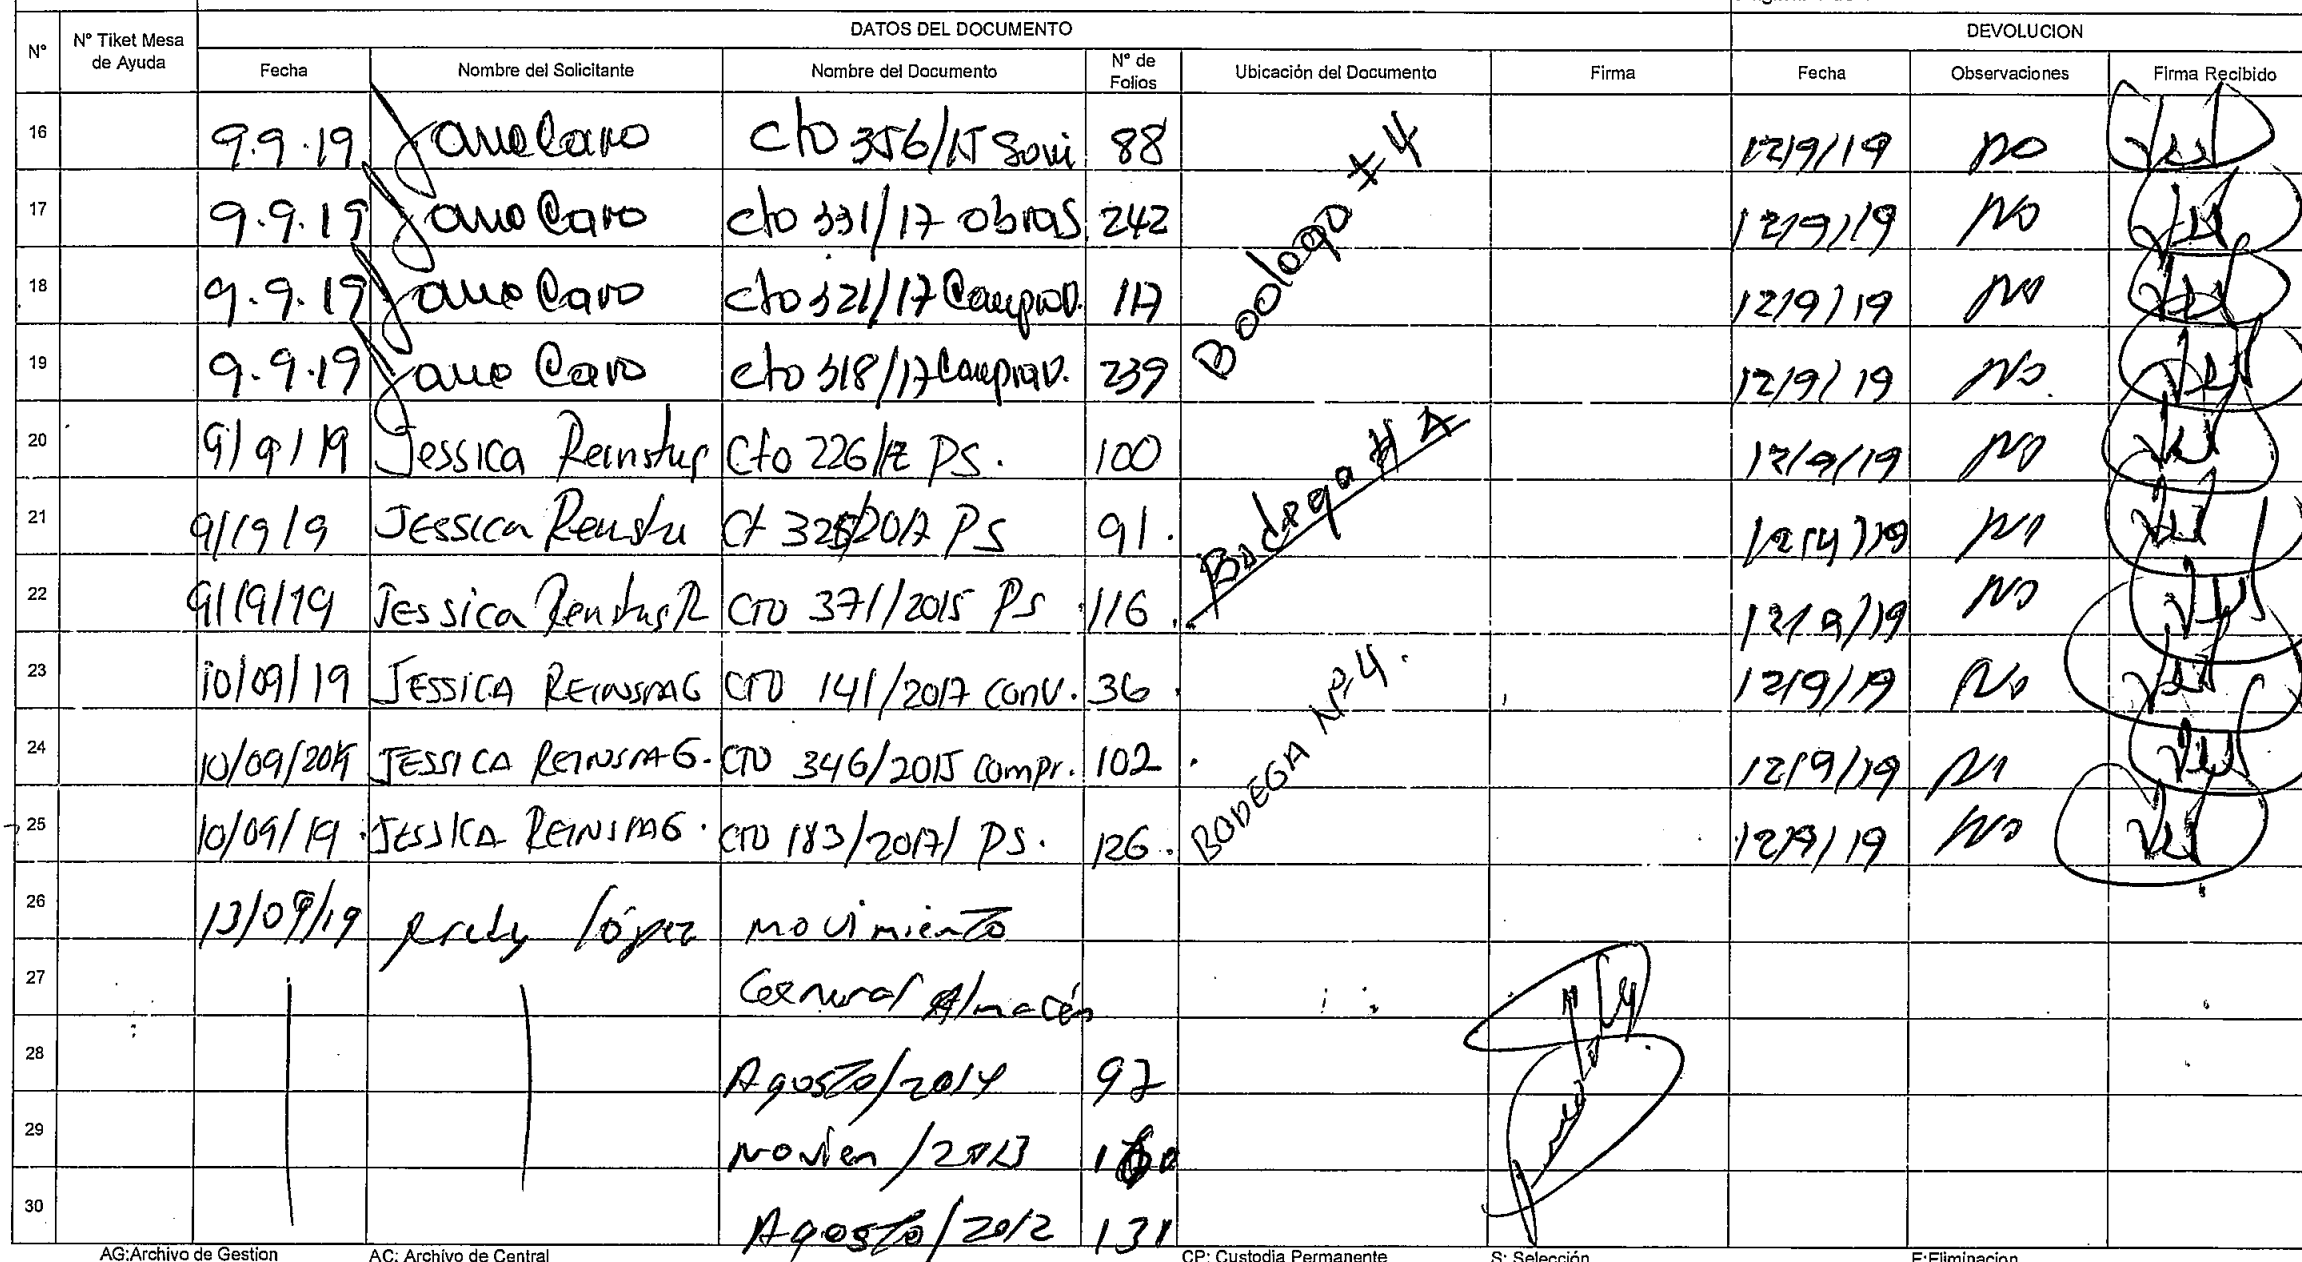 DATOS DEL DOCUMENTO DEVOLUCION
N° N° Tiket Mesa de Ayuda Fecha Nombre del Solicitante Nombre del Documento N° de Folios Ubicación del Documento Firma Fecha Observaciones Firma Recibido
16 9.9.19 Jane Caro Cto 356/15 88 12/9/19 NO
17 9.9.19 Jane Caro Cto 331/17 Obras 242 12/9/19 NO
18 9.9.19 Jane Caro Cto 321/17 Comprav. 117 12/9/19 NO
19 9.9.19 Jane Caro Cto 318/17 Comprav. 239 12/9/19 NO
Bodega # 4
20 9/9/19 Jessica Cto 226/17 PS. 100 12/9/19 NO
21 9/19/9 Jessica Ct 2017 PS 91. 12/9/19 NO
22 9/19/19 Jessica CTO 371/2015 PS 116. 12/9/19 NO
Bodega # 4
23 10/09/19 JESSICA REINSPAG CTO 141/2017 CONV. 36 12/9/19 NO
24 10/09/2019 JESSICA REINSPAG. CTO 346/2015 Compr. 102 12/9/19 NO
25 10/09/19 JESSICA REINSPAG. CTO 183/2017/ PS. 126. 12/9/19 NO
BODEGA Nº 4.
26 13/09/19 López Movimiento
27 General Almacén
28 Agosto/2014 97
29 Novien/2013
30 Agosto/2012 131
AG:Archivo de Gestion AC: Archivo de Central CP: Custodia Permanente S: Selección E:Eliminacion